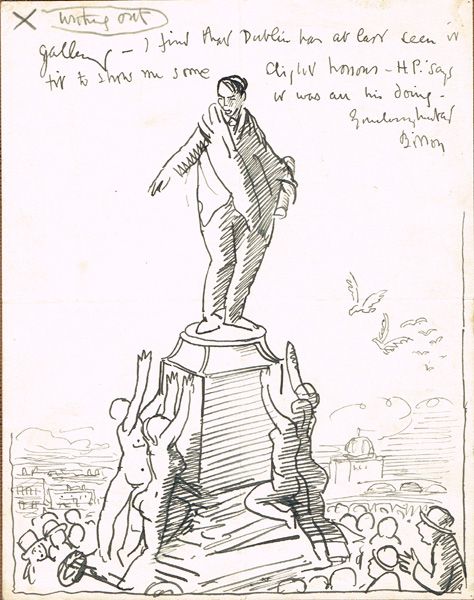 out
gallery – I find that Dublin has at last seen it
fit to show me some slight honors – H.P. says
it was all his doing –